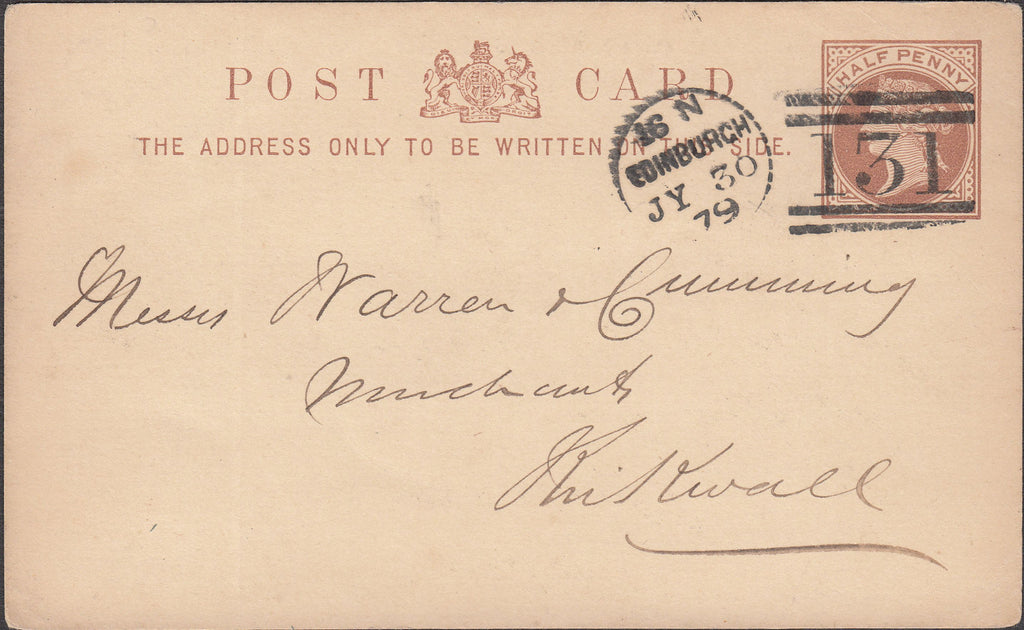 POST CARD
THE ADDRESS ONLY TO BE WRITTEN ON THE SIDE.
HALF PENNY
EDINBURGH
JY 30
79
131
Messrs Warren & Cumming
Merchants
Kirkwall